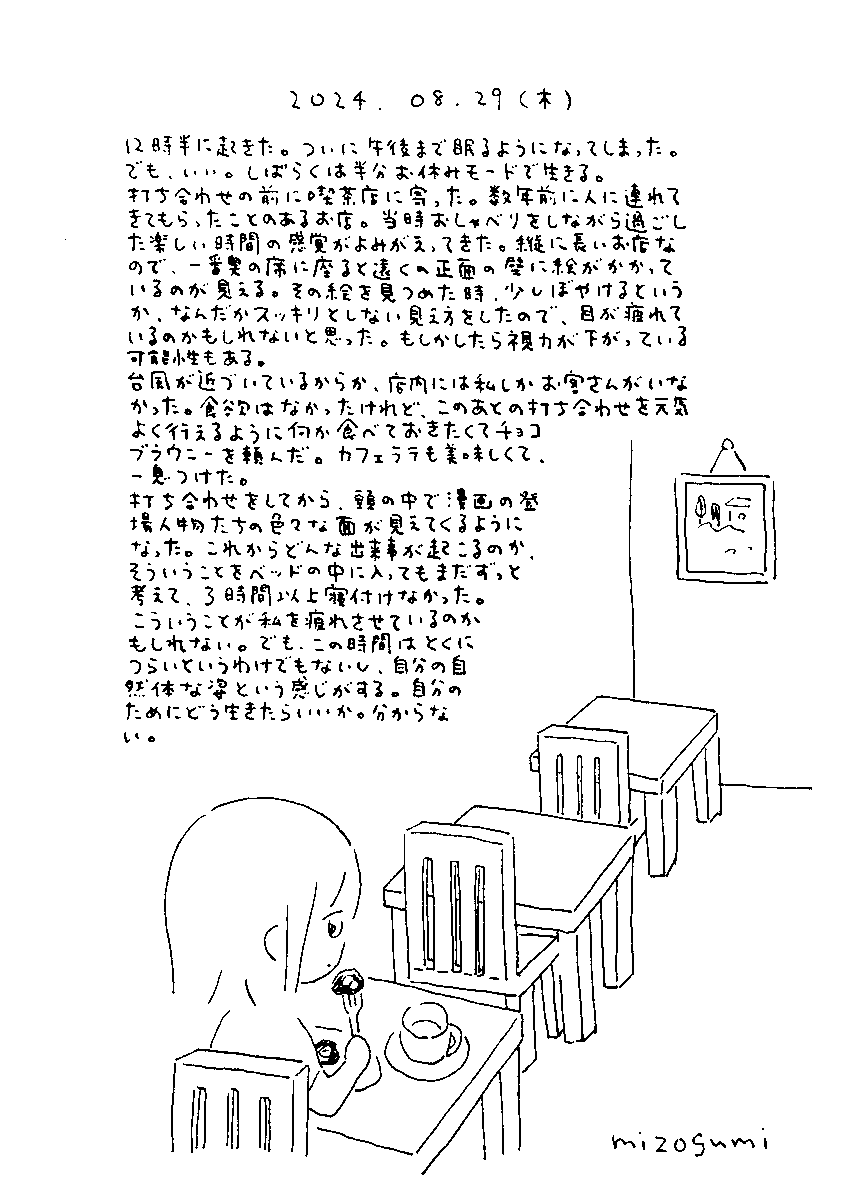 2024. 08. 29(木)
12時半に起きた。ついに午後まで眠るようになってしまった。
でも、いい。しばらくは半分お休みモードで生きる。
打ち合わせの前に喫茶店に寄った。数年前に人に連れて
きてもらったことのあるお店。当時おしゃべりをしながら過ごし
た楽しい時間の感覚がよみがえってきた。縦に長いお店な
ので、一番奥の席に座ると遠くの正面の壁に絵がかかって
いるのが見える。その絵を見つめた時、少しぼやけるという
か、なんだかスッキリとしない見え方をしたので、目が疲れて
いるのかもしれないと思った。もしかしたら視力が下がっている
可能性もある。
台風が近づいているからか、店内には私しかお客さんがいな
かった。食欲はなかったけれど、このあとの打ち合わせを元気
よく行えるように何か食べておきたくてチョコ
ブラウニーを頼んだ。カフェラテも美味しくて、
一息つけた。
打ち合わせをしてから、頭の中で漫画の登
場人物たちの色々な面が見えてくるように
なった。これからどんな出来事が起こるのか、
そういうことをベッドの中に入ってもまだずっと
考えて、3時間以上寝付けなかった。
こういうことが私を疲れさせているのか
もしれない。でも、この時間はとくに
つらいというわけでもないし、自分の自
然体な姿という感じがする。自分の
ためにどう生きたらいいか。分からな
い。
mizogumi